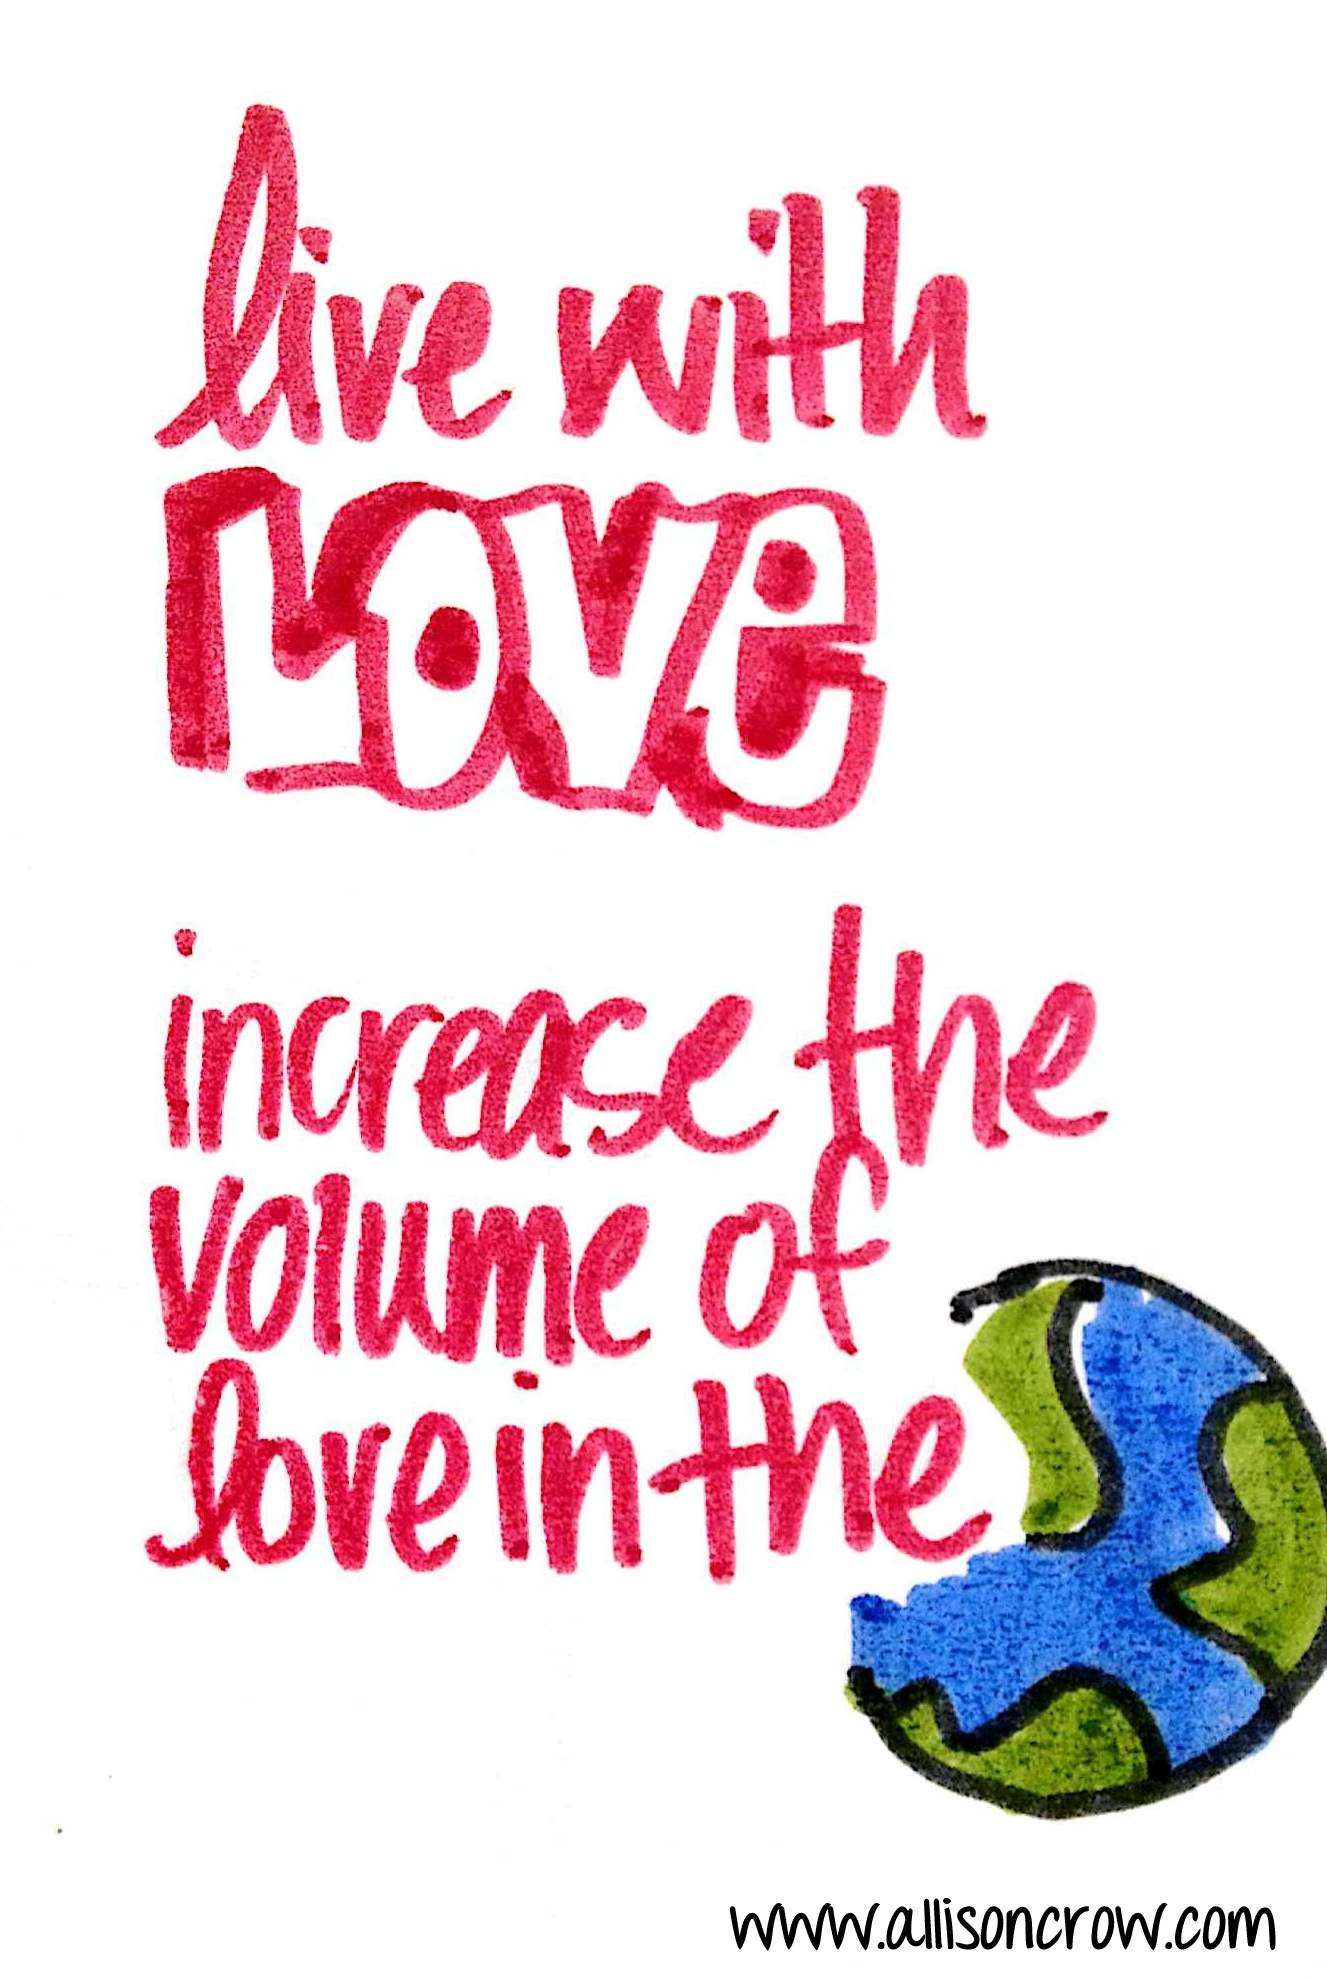 live with
LOVe
increase the
volume of
love in the
www.allisoncrow.com